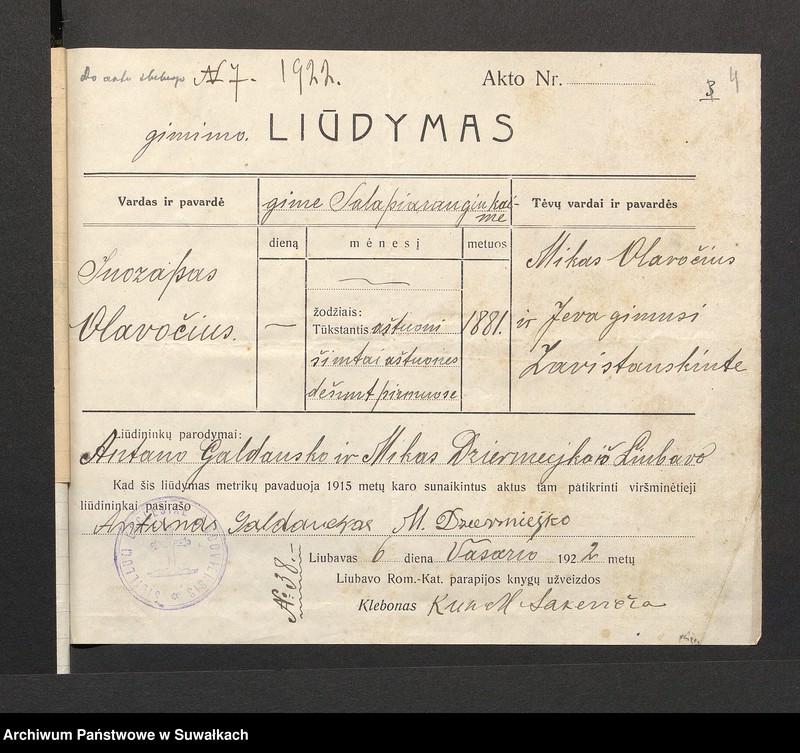 Do aktu N 7. 1922.
Akto Nr.
3 4
gimimo. LIŪDYMAS
Vardas ir pavardė
gime Salapiaraugiu kai-
me
Tėvų vardai ir pavardės
dieną mėnesį metuos
Juozapas
Olavočius.
—
žodžiais:
Tūkstantis aštuoni
šimtai aštuones
dešimt pirmuose
1881.
Mikas Olavočius
ir Jeva gimusi
Zavistauskinte
Liūdininkų parodymai:
Antano Galdausko ir Mikas Dziermeijko iš Liubavo
Kad šis liūdymas metrikų pavaduoja 1915 metų karo sunaikintus aktus tam patikrinti viršminėtieji
liūdininkai pasirašo
Antanas Galdauckas M. Dzermiejko
Liubavas 6 diena Vasario 1922 metų
Liubavo Rom.-Kat. parapijos knygų užveizdos
Klebonas Kun M
№ 38
Archiwum Państwowe w Suwałkach